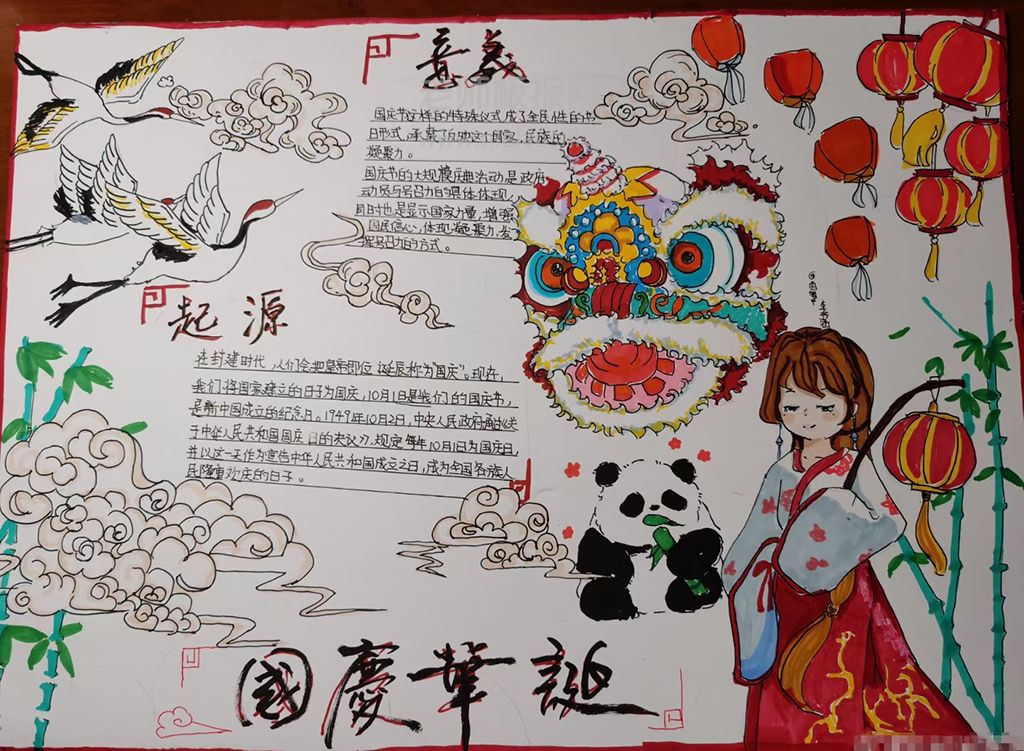 意義
国庆节这样的特殊仪式成了全民性的节
日形式,承载了反映这个国家、民族的
凝聚力。
国庆节的大规模庆典活动是政府
动员与号召力的具体体现,
同时也是显示国家力量、增强
国民信心,体现凝聚力,发
挥号召力的方式。
起源
在封建时代,人们会把皇帝即位、诞辰称为“国庆”。现在,
我们将国家建立的日子为国庆,10月1日是我们的国庆节,
是新中国成立的纪念日。1949年10月2日,中央人民政府通过关
于中华人民共和国国庆日的决议,规定每年10月1日为国庆日,
并以这一天作为宣告中华人民共和国成立之日,成为全国各族人
民隆重欢庆的日子。
國慶華誕